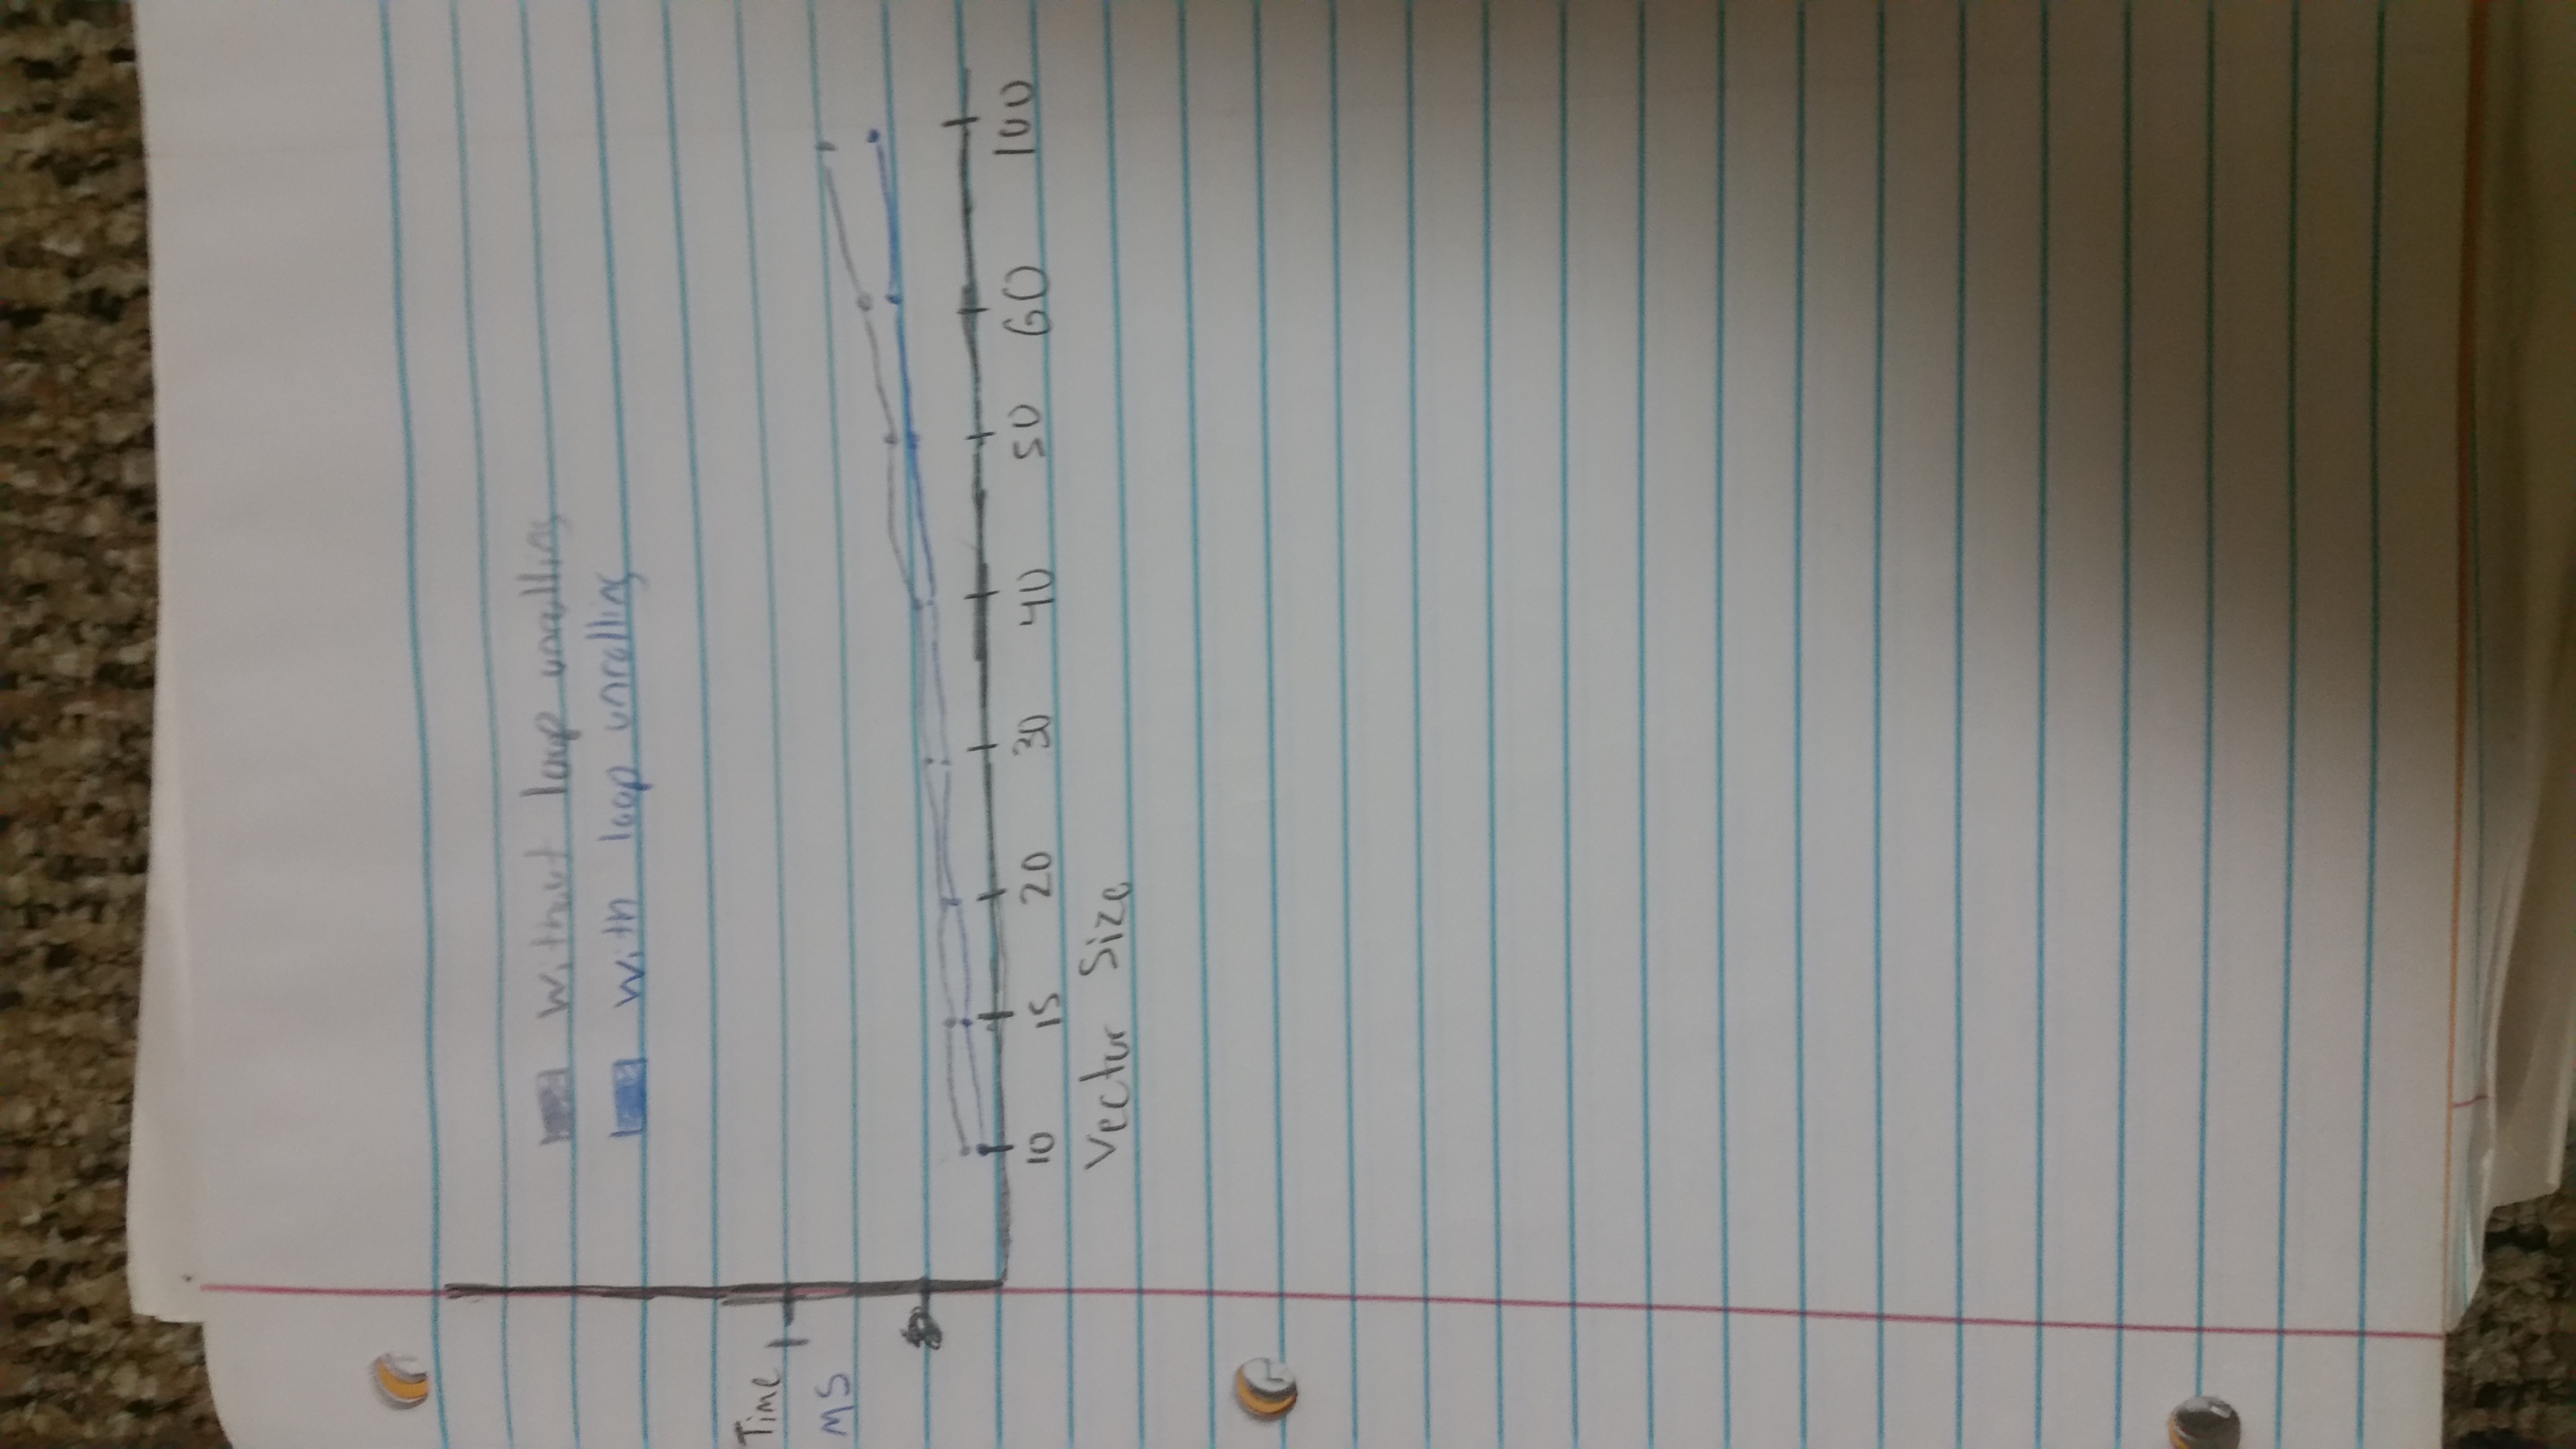 without loop unrolling
with loop unrolling
Time
MS
1
10 15 20 30 40 50 60 100
Vector Size